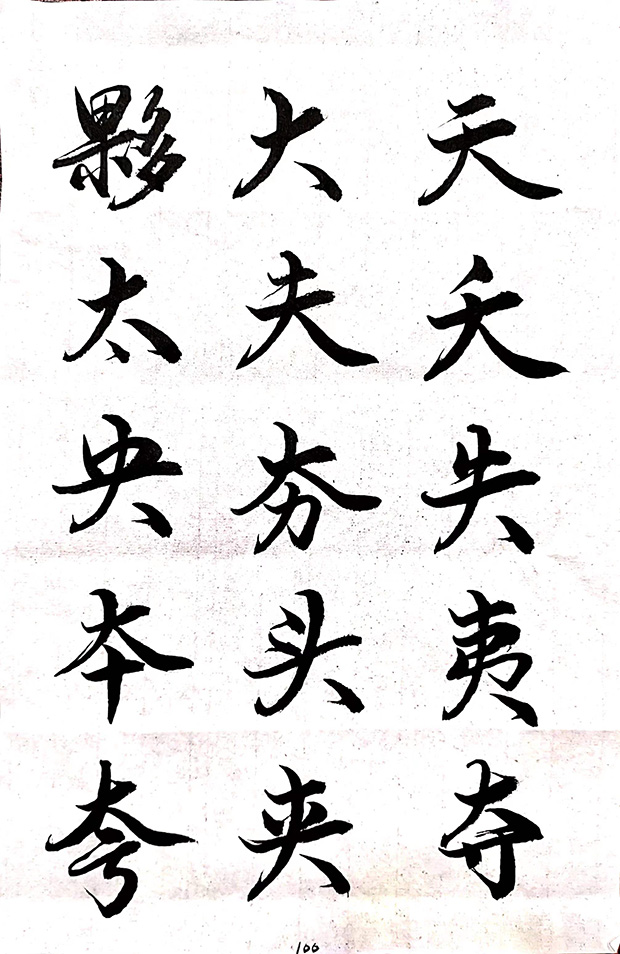 夥大天
太夫夭
央夯失
夲头夷
夸夹夺
100